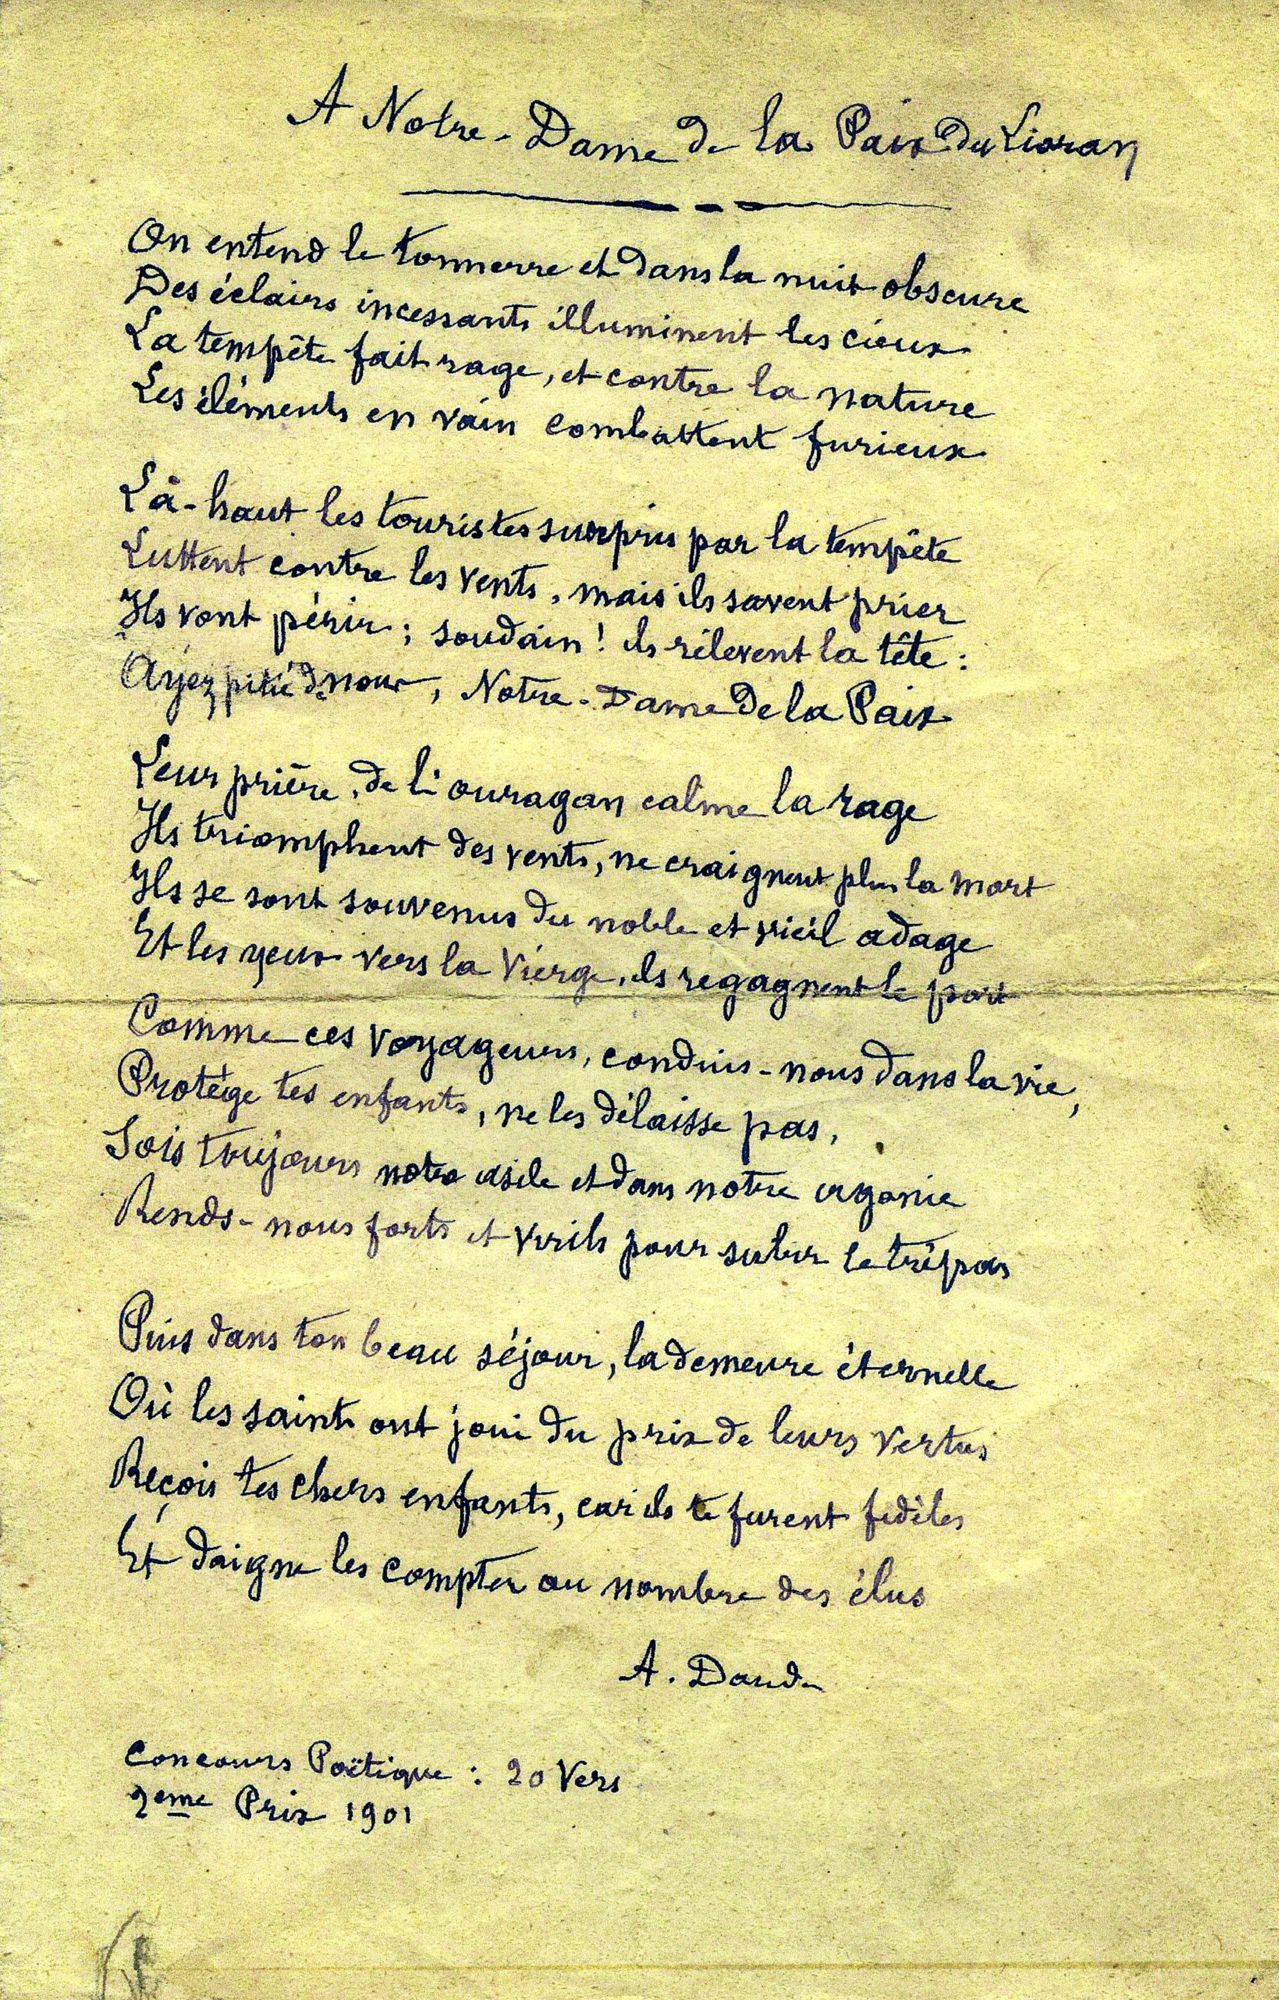 A Notre-Dame de la Paix du Lioran
On entend le tonnerre et dans la nuit obscure
Des éclairs incessants illuminent les cieux
La tempête fait rage, et contre la nature
Les éléments en vain combattent furieux
Là-haut les touristes surpris par la tempête
Luttent contre les vents, mais ils savent prier
Ils vont périr ; soudain ! ils rélèvent la tête :
Ayez pitié de nous, Notre-Dame de la Paix
Leur prière, de l'ouragan calme la rage
Ils triomphent des vents, ne craignent plus la mort
Ils se sont souvenus du noble et vieil adage
Et les yeux vers la Vierge, ils regagnent le port
Comme ces voyageurs, conduis-nous dans la vie,
Protège tes enfants, ne les délaisse pas,
Sois toujours notre asile et dans notre agonie
Rends-nous forts et virils pour subir le trépas
Puis dans ton beau séjour, la demeure éternelle
Où les saints ont joui du prix de leurs vertus
Reçois tes chers enfants, car ils te furent fidèles
Et daigne les compter au nombre des élus
A. Daude
Concours Poëtique : 20 Vers
2eme Prix 1901